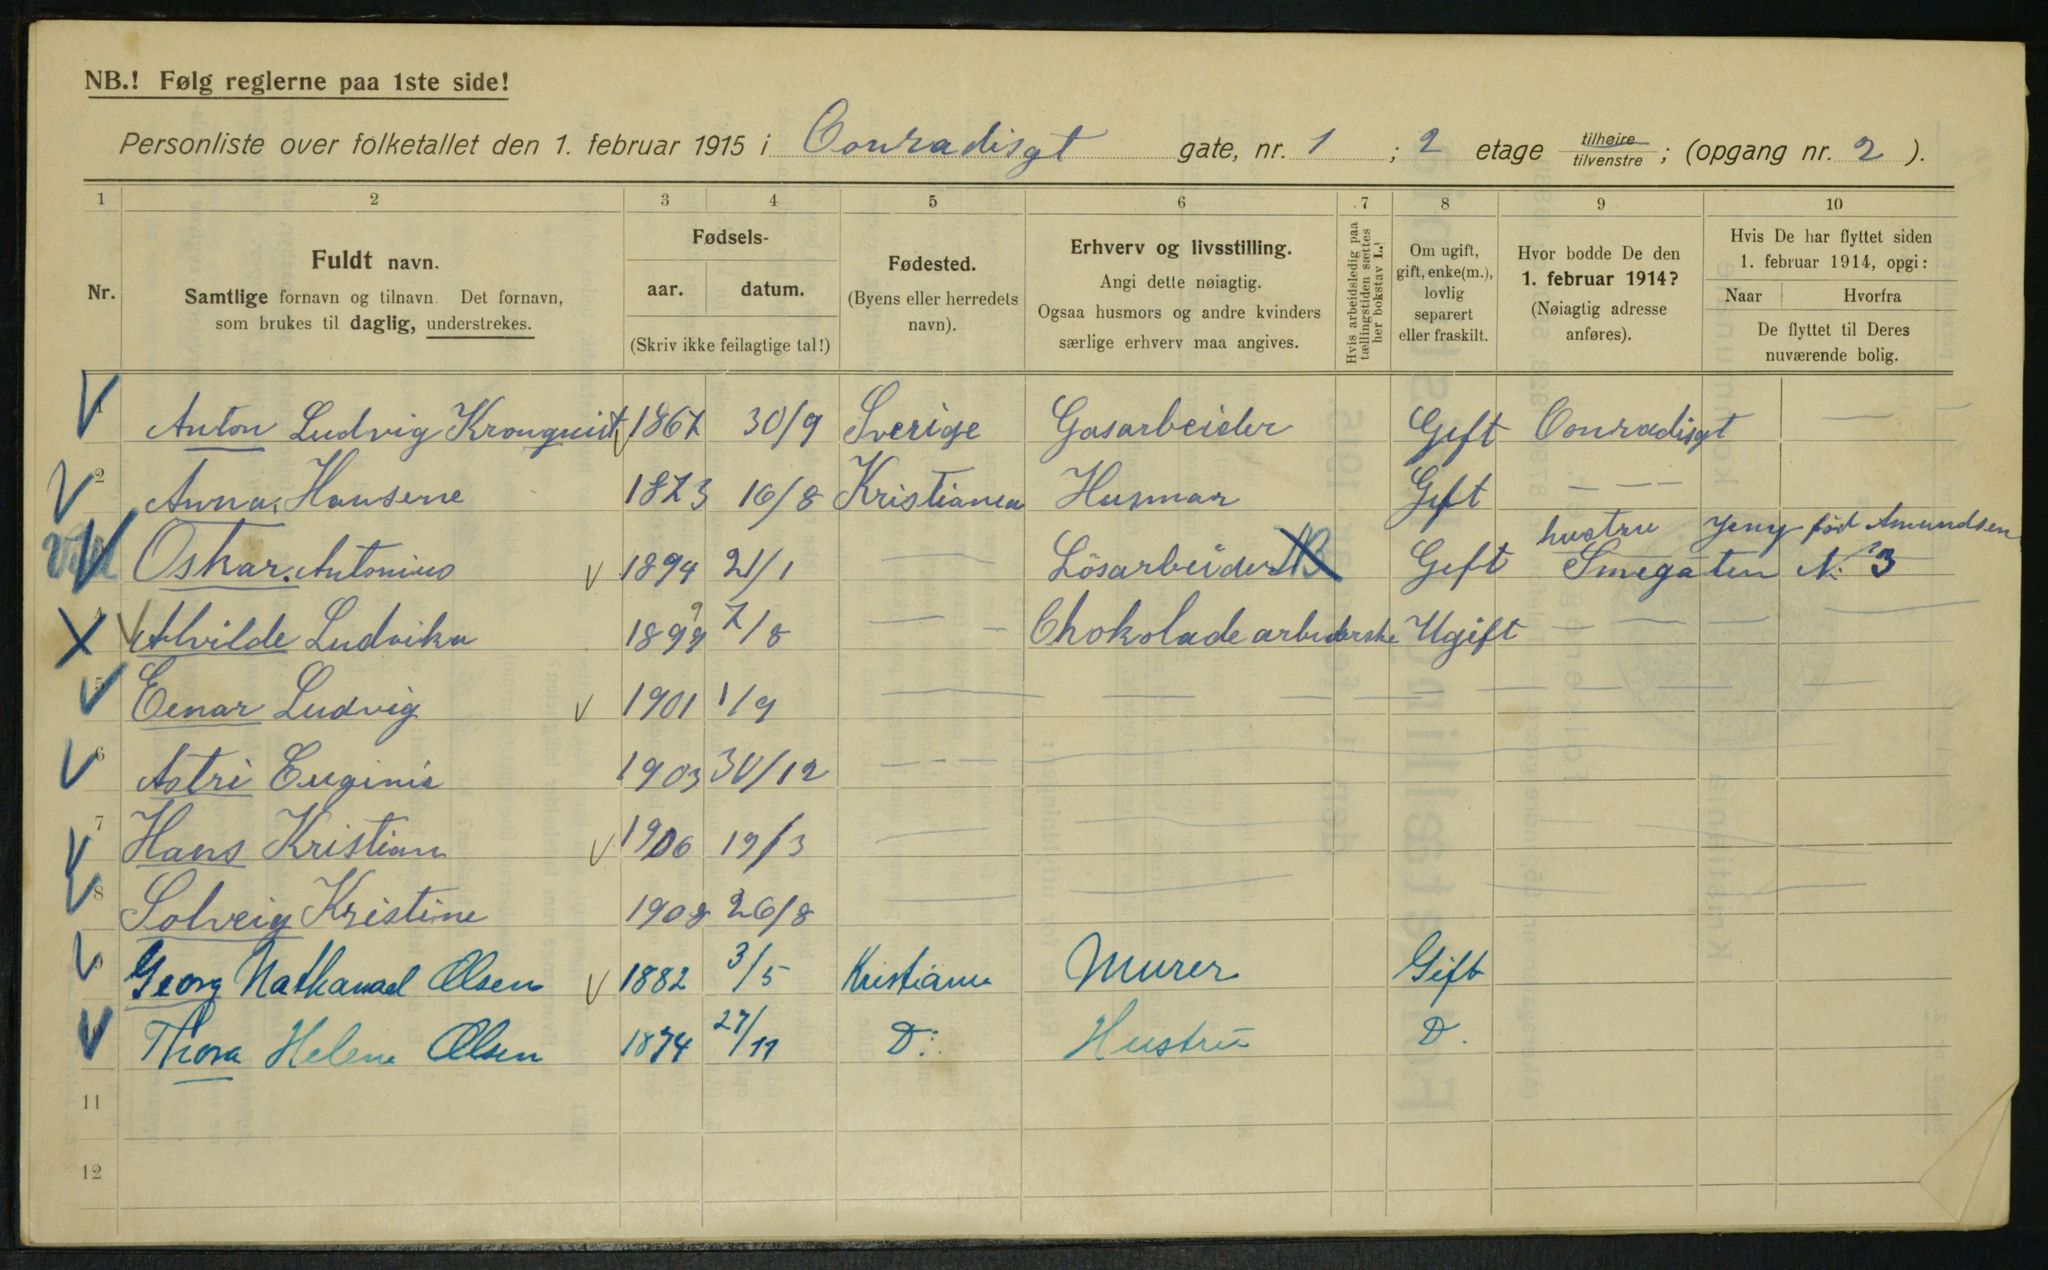 NB.! Følg reglerne paa 1ste side!
Personliste over folketallet den 1. februar 1915 i Conradisgt gate, nr. 1 ; 2 etage tilhøire/tilvenstre ; (opgang nr. 2 ).
1 2 3 4 5 6 7 8 9 10
Nr.
Fuldt navn.
Samtlige fornavn og tilnavn. Det fornavn,
som brukes til daglig, understrekes.
Fødsels-
aar. datum.
(Skriv ikke feilagtige tal!)
Fødested.
(Byens eller herredets
navn).
Erhverv og livsstilling.
Angi dette nøiagtig.
Ogsaa husmors og andre kvinders
særlige erhverv maa angives.
Hvis arbeidsledig paa
tællingstiden sættes
her bokstav L.
Om ugift,
gift, enke(m.),
lovlig
separert
eller fraskilt.
Hvor bodde De den
1. februar 1914?
(Nøiagtig adresse
anføres).
Hvis De har flyttet siden
1. februar 1914, opgi:
Naar Hvorfra
De flyttet til Deres
nuværende bolig.
1 Anton Ludvig Kronquist 1867 30/9 Sverige Gasarbeider Gift Conradisgt —
2 Anna Hansene 1873 16/8 Kristiania Husmor Gift — — —
hustru Jeny född Amundsen
Oskar Antonius 1894 21/1 — Lösarbeider Gift Smegaten N: 3
4 Alvilde Ludvika 1899 7/8 — — Chokoladearbeiderske Ugift — — — —
5 Einar Ludvig 1901 1/9 — — — — — — — —
6 Astri Euginie 1903 30/12 — — —
7 Hans Kristian 1906 19/3 —
8 Solveig Kristine 1908 26/8 —
9 Georg Nathanael Olsen 1882 3/5 Kristiania Murer Gift
Thora Helene Olsen 1874 27/11 D: Hustru D.
11
12